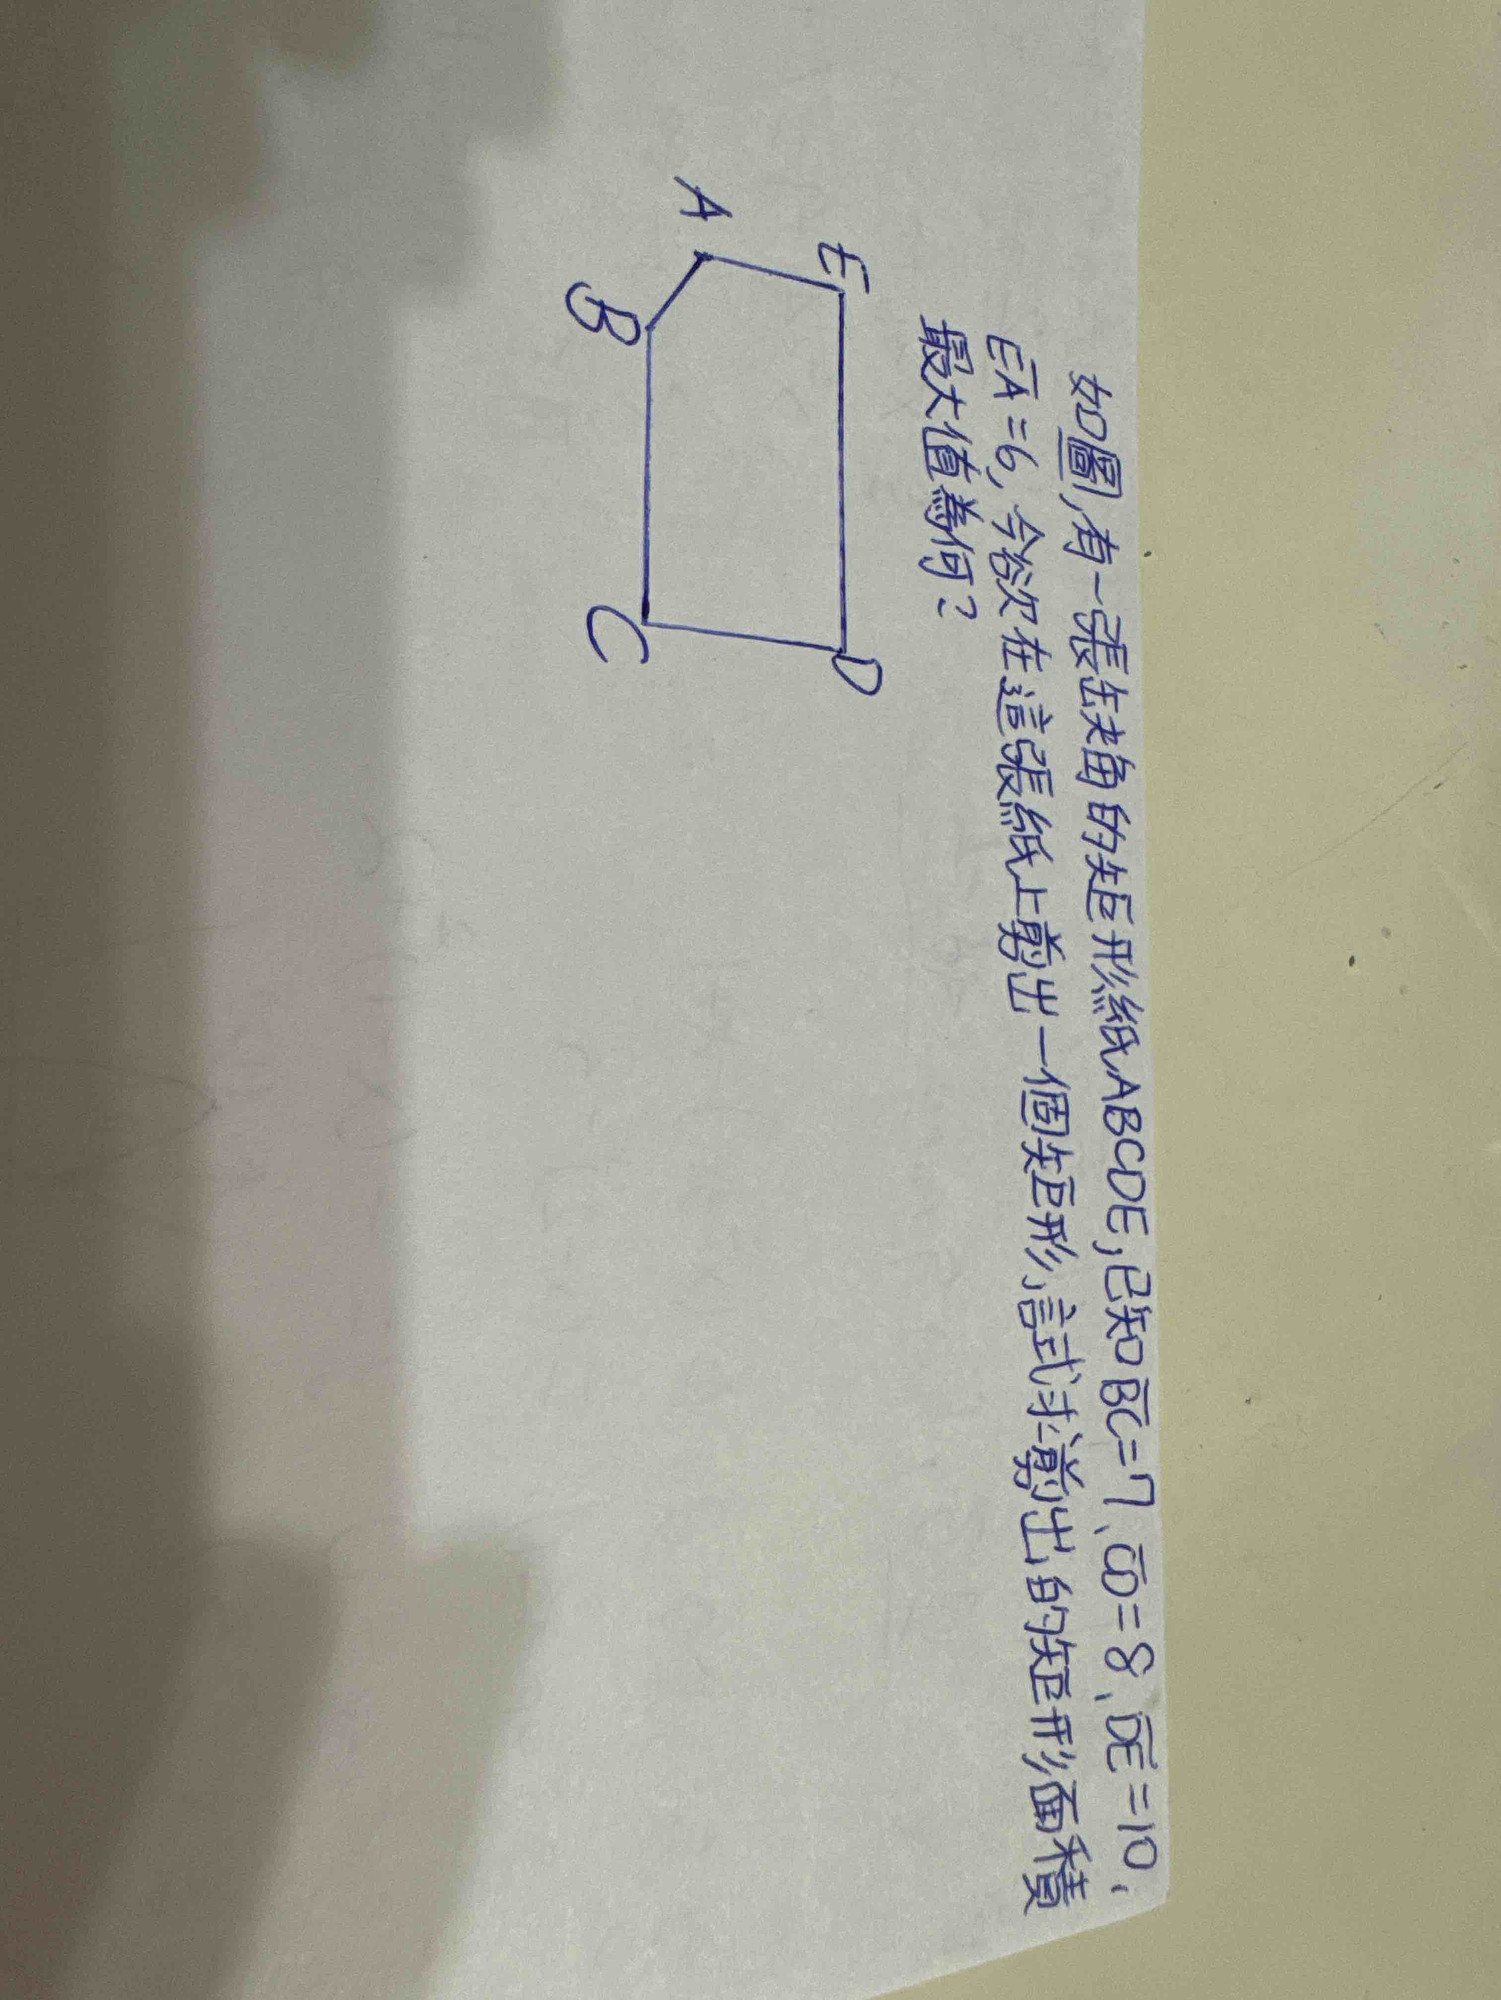 如圖,有一張缺角的矩形紙ABCDE,已知B̅C̅=7、C̅D̅=8、D̅E̅=10、
E̅A̅=6,今欲在這張紙上剪出一個矩形,試求剪出的矩形面積
最大值為何?
E
D
A
B
C